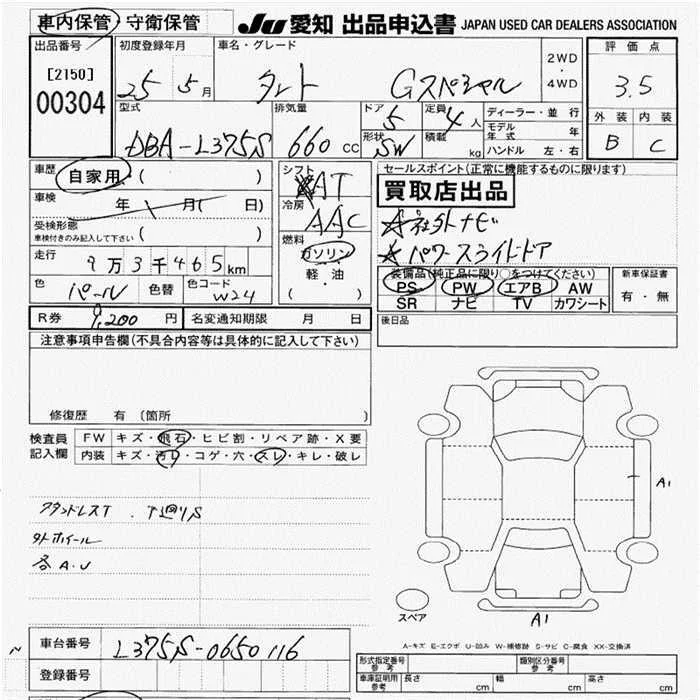 車内保管・守衛保管 JU 愛知 出品申込書 JAPAN USED CAR DEALERS ASSOCIATION
出品番号 初度登録年月 車名・グレード 2WD・4WD 評価点
[2150] 00304 25 5月 タント Gスペシャル 3.5
型式 排気量 ドア 5 定員 4人 ディーラー・並行 外装 内装
DBA-L375S 660cc 形状 SW 積載 kg モデル年式 年 B C
ハンドル 左・右
車歴 自家用 ( ) シフト AT セールスポイント(正常に機能するものに限ります)
車検 年 月( 日) 冷房 AAC 買取店出品
受検形態 車検付きのみ記入して下さい ( ) ☆社外ナビ
燃料 ガソリン ☆パワースライドドア
走行 9万3千465km 軽・油 装備品(純正品に限り○をつけてください) 新車保証書
色 パール 色替 色コード W24 ( ) PS PW エアB AW 有・無
SR ナビ TV カワシート
R券 9,200円 名変通知期限 月 日 後日品
注意事項申告欄(不具合内容等は具体的に記入して下さい)
修復歴 有 (箇所 )
検査員 FW キズ・飛石・ヒビ割・リペア跡・X要
記入欄 内装 キズ・汚レ・コゲ・穴・スレ・キレ・破レ
A1
タトホイール
各A.U
スペア A1
A-キズ E-エクボ U-凹み W-補修跡 S-サビ C-腐食 XX-交換済
車台番号 L375S-0650116
登録番号
形式指定番号 参考 類別区分番号 参考
車庫証明用 参考 長さ cm 幅 cm 高さ cm